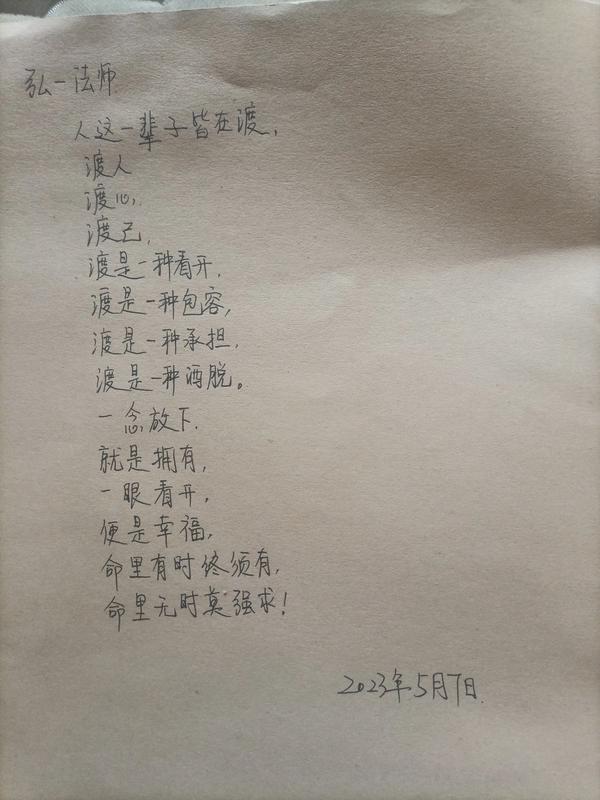 弘一法师
人这一辈子皆在渡,
渡人
渡心,
渡己,
渡是一种看开,
渡是一种包容,
渡是一种承担,
渡是一种洒脱。
一念放下,
就是拥有,
一眼看开,
便是幸福,
命里有时终须有,
命里无时莫强求!
2023年5月7日